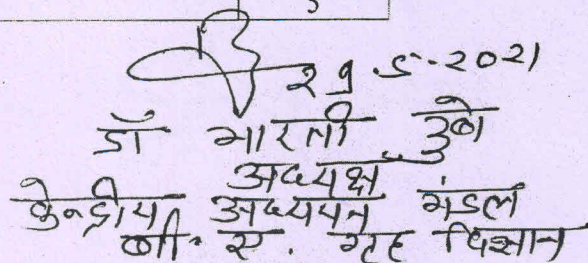 29.5-2021
डॉ भारती दुबे
अध्यक्ष
केन्द्रीय अध्ययन मंडल
बी. ए. गृह विज्ञान